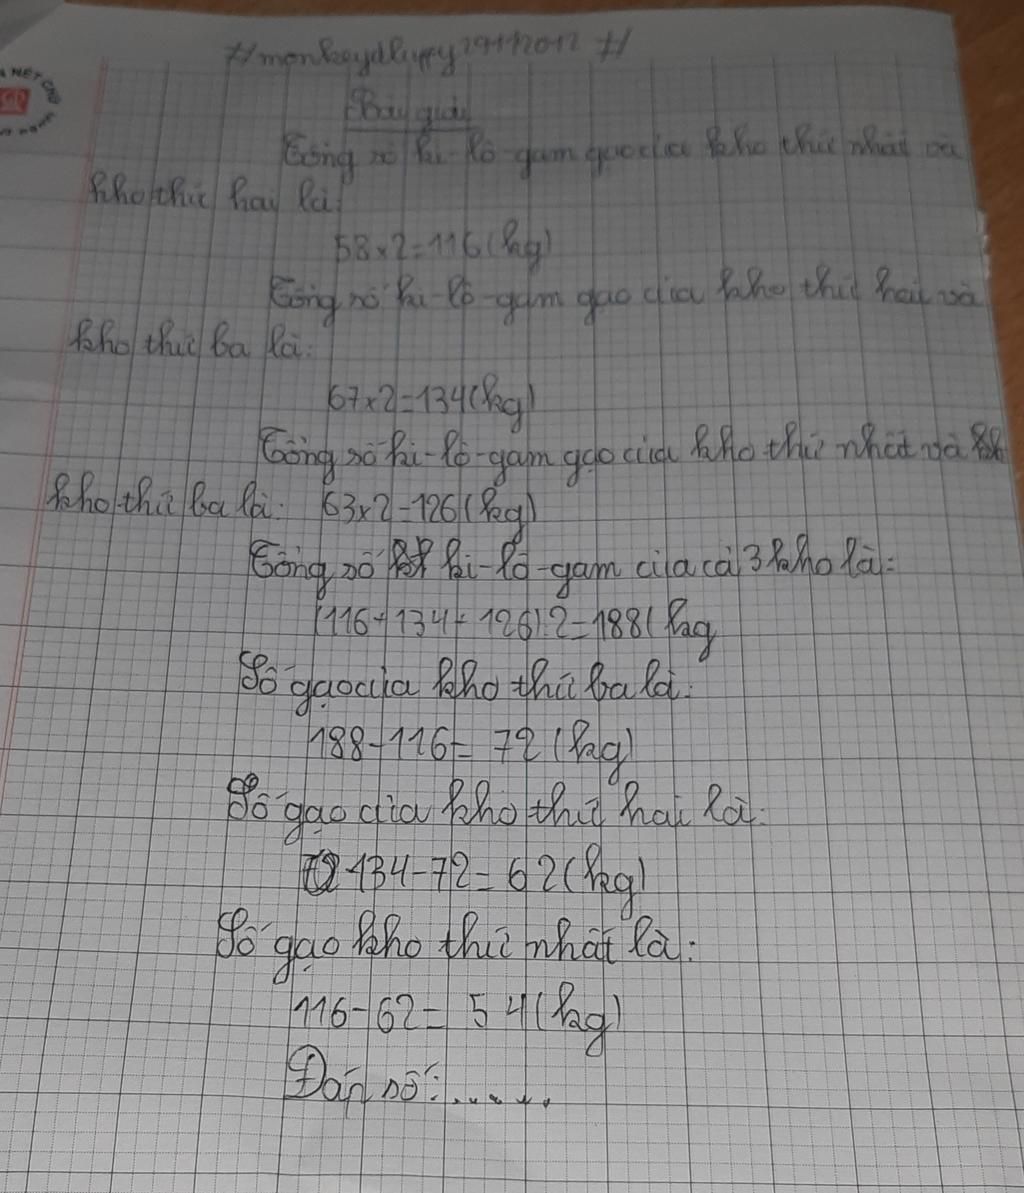 #monkeydluffy29112012 #
Bài giải
Tổng số ki-lô-gam gạo của kho thứ nhất và
kho thứ hai là:
58×2=116(kg)
Tổng số ki-lô-gam gạo của kho thứ hai và
kho thứ ba là:
67×2=134(kg)
Tổng số ki-lô-gam gạo của kho thứ nhất và
kho thứ ba là: 63×2=126(kg)
Tổng số ki-lô-gam của cả 3 kho là:
(116+134+126):2=188(kg
Số gạo của kho thứ ba là:
188-116= 72(kg)
Số gạo của kho thứ hai là:
134-72=62(kg)
Số gạo kho thứ nhất là:
116-62= 54(kg)
Đáp số:.....